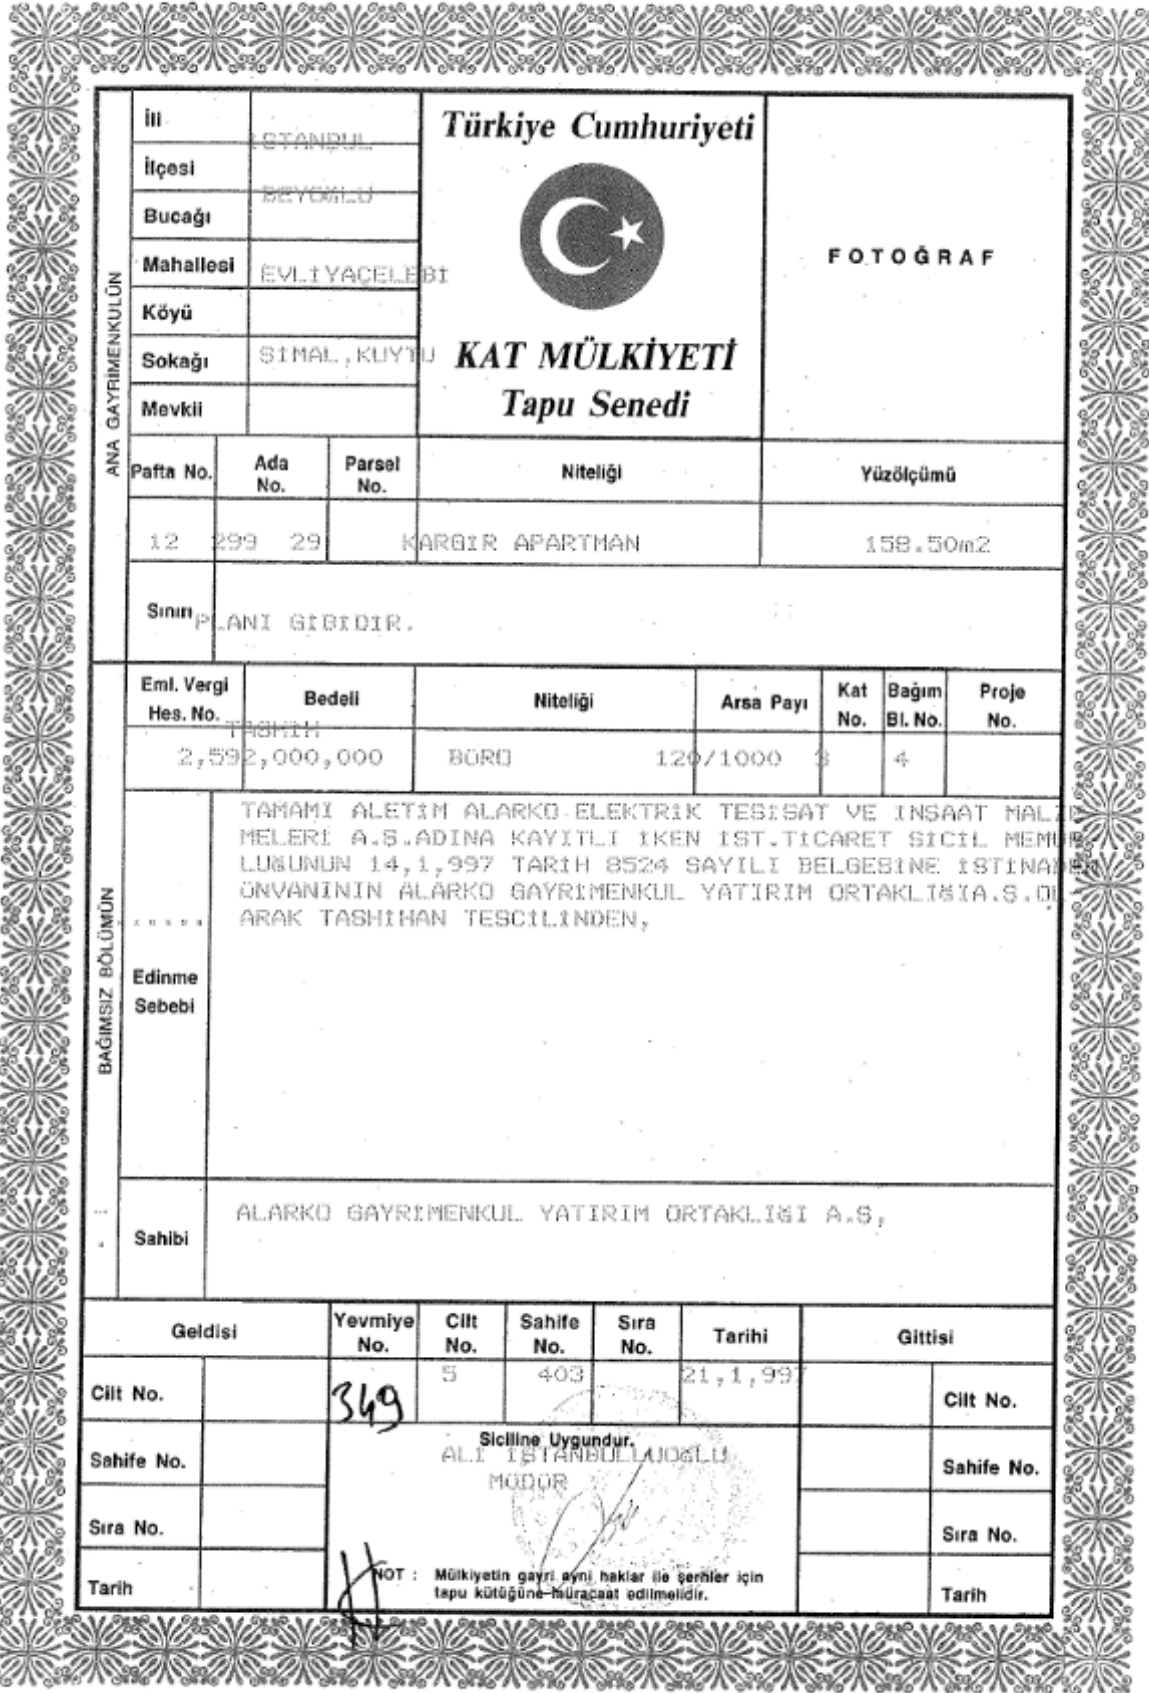 ANA GAYRİMENKULÜN
İli
İSTANBUL
İlçesi
BEYOĞLU
Bucağı
Mahallesi
EVLİYAÇELEBİ
Köyü
Sokağı
SİMAL,KUYTU
Mevkii
Türkiye Cumhuriyeti
KAT MÜLKİYETİ
Tapu Senedi
FOTOĞRAF
Pafta No.
Ada No.
Parsel No.
Niteliği
Yüzölçümü
12 299 29 KARGIR APARTMAN 158.50m2
Sınırı
PLANI GİBİDİR.
BAĞIMSIZ BÖLÜMÜN
Eml. Vergi Hes. No.
Bedeli
Niteliği
Arsa Payı
Kat No.
Bağım Bl. No.
Proje No.
2,592,000,000 BÜRO 120/1000 3 4
Edinme Sebebi
TAMAMI ALETİM ALARKO ELEKTRİK TESİSAT VE İNSAAT MALZE
MELERİ A.S.ADINA KAYITLI İKEN İST.TİCARET SİCİL MEMUR
LUĞUNUN 14,1,997 TARİH 8524 SAYILI BELGESİNE İSTİNADEN
ÜNVANININ ALARKO GAYRİMENKUL YATIRIM ORTAKLIĞIA.S.OL
ARAK TASHİHAN TESCİLİNDEN,
Sahibi
ALARKO GAYRİMENKUL YATIRIM ORTAKLIĞI A.S,
Geldisi
Yevmiye No.
Cilt No.
Sahife No.
Sıra No.
Tarihi
Gittisi
349 5 403 21,1,997
Cilt No.
Sahife No.
Sıra No.
Tarih
Siciline Uygundur.
ALİ İSTANBULLUOĞLU
MÜDÜR
NOT : Mülkiyetin gayri ayni haklar ile şerhler için
tapu kütüğüne müracaat edilmelidir.
Cilt No.
Sahife No.
Sıra No.
Tarih